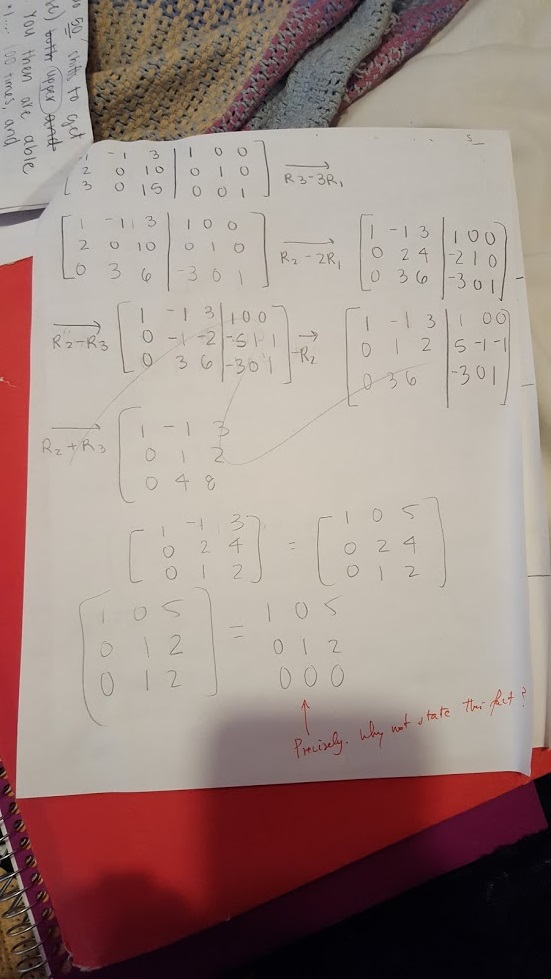 so 50 shifts to get
upper
You then are able
100 times, and
5
-1 3 | 1 0 0
2 0 10 | 0 1 0
3 0 15 | 0 0 1
R3-3R1
1 -1 3 | 1 0 0
2 0 10 | 0 1 0
0 3 6 | -3 0 1
R2-2R1
1 -1 3 | 1 0 0
0 2 4 | -2 1 0
0 3 6 | -3 0 1
R2-R3
1 -1 3 | 1 0 0
0 -1 -2 | -5 1 1
0 3 6 | -3 0 1
-R2
1 -1 3 | 1 0 0
0 1 2 | 5 -1 -1
0 3 6 | -3 0 1
R2+R3
1 -1 3
0 1 2
0 4 8
1 -1 3
0 2 4
0 1 2
=
1 0 5
0 2 4
0 1 2
1 0 5
0 1 2
0 1 2
=
1 0 5
0 1 2
0 0 0
Precisely. Why not state this fact?